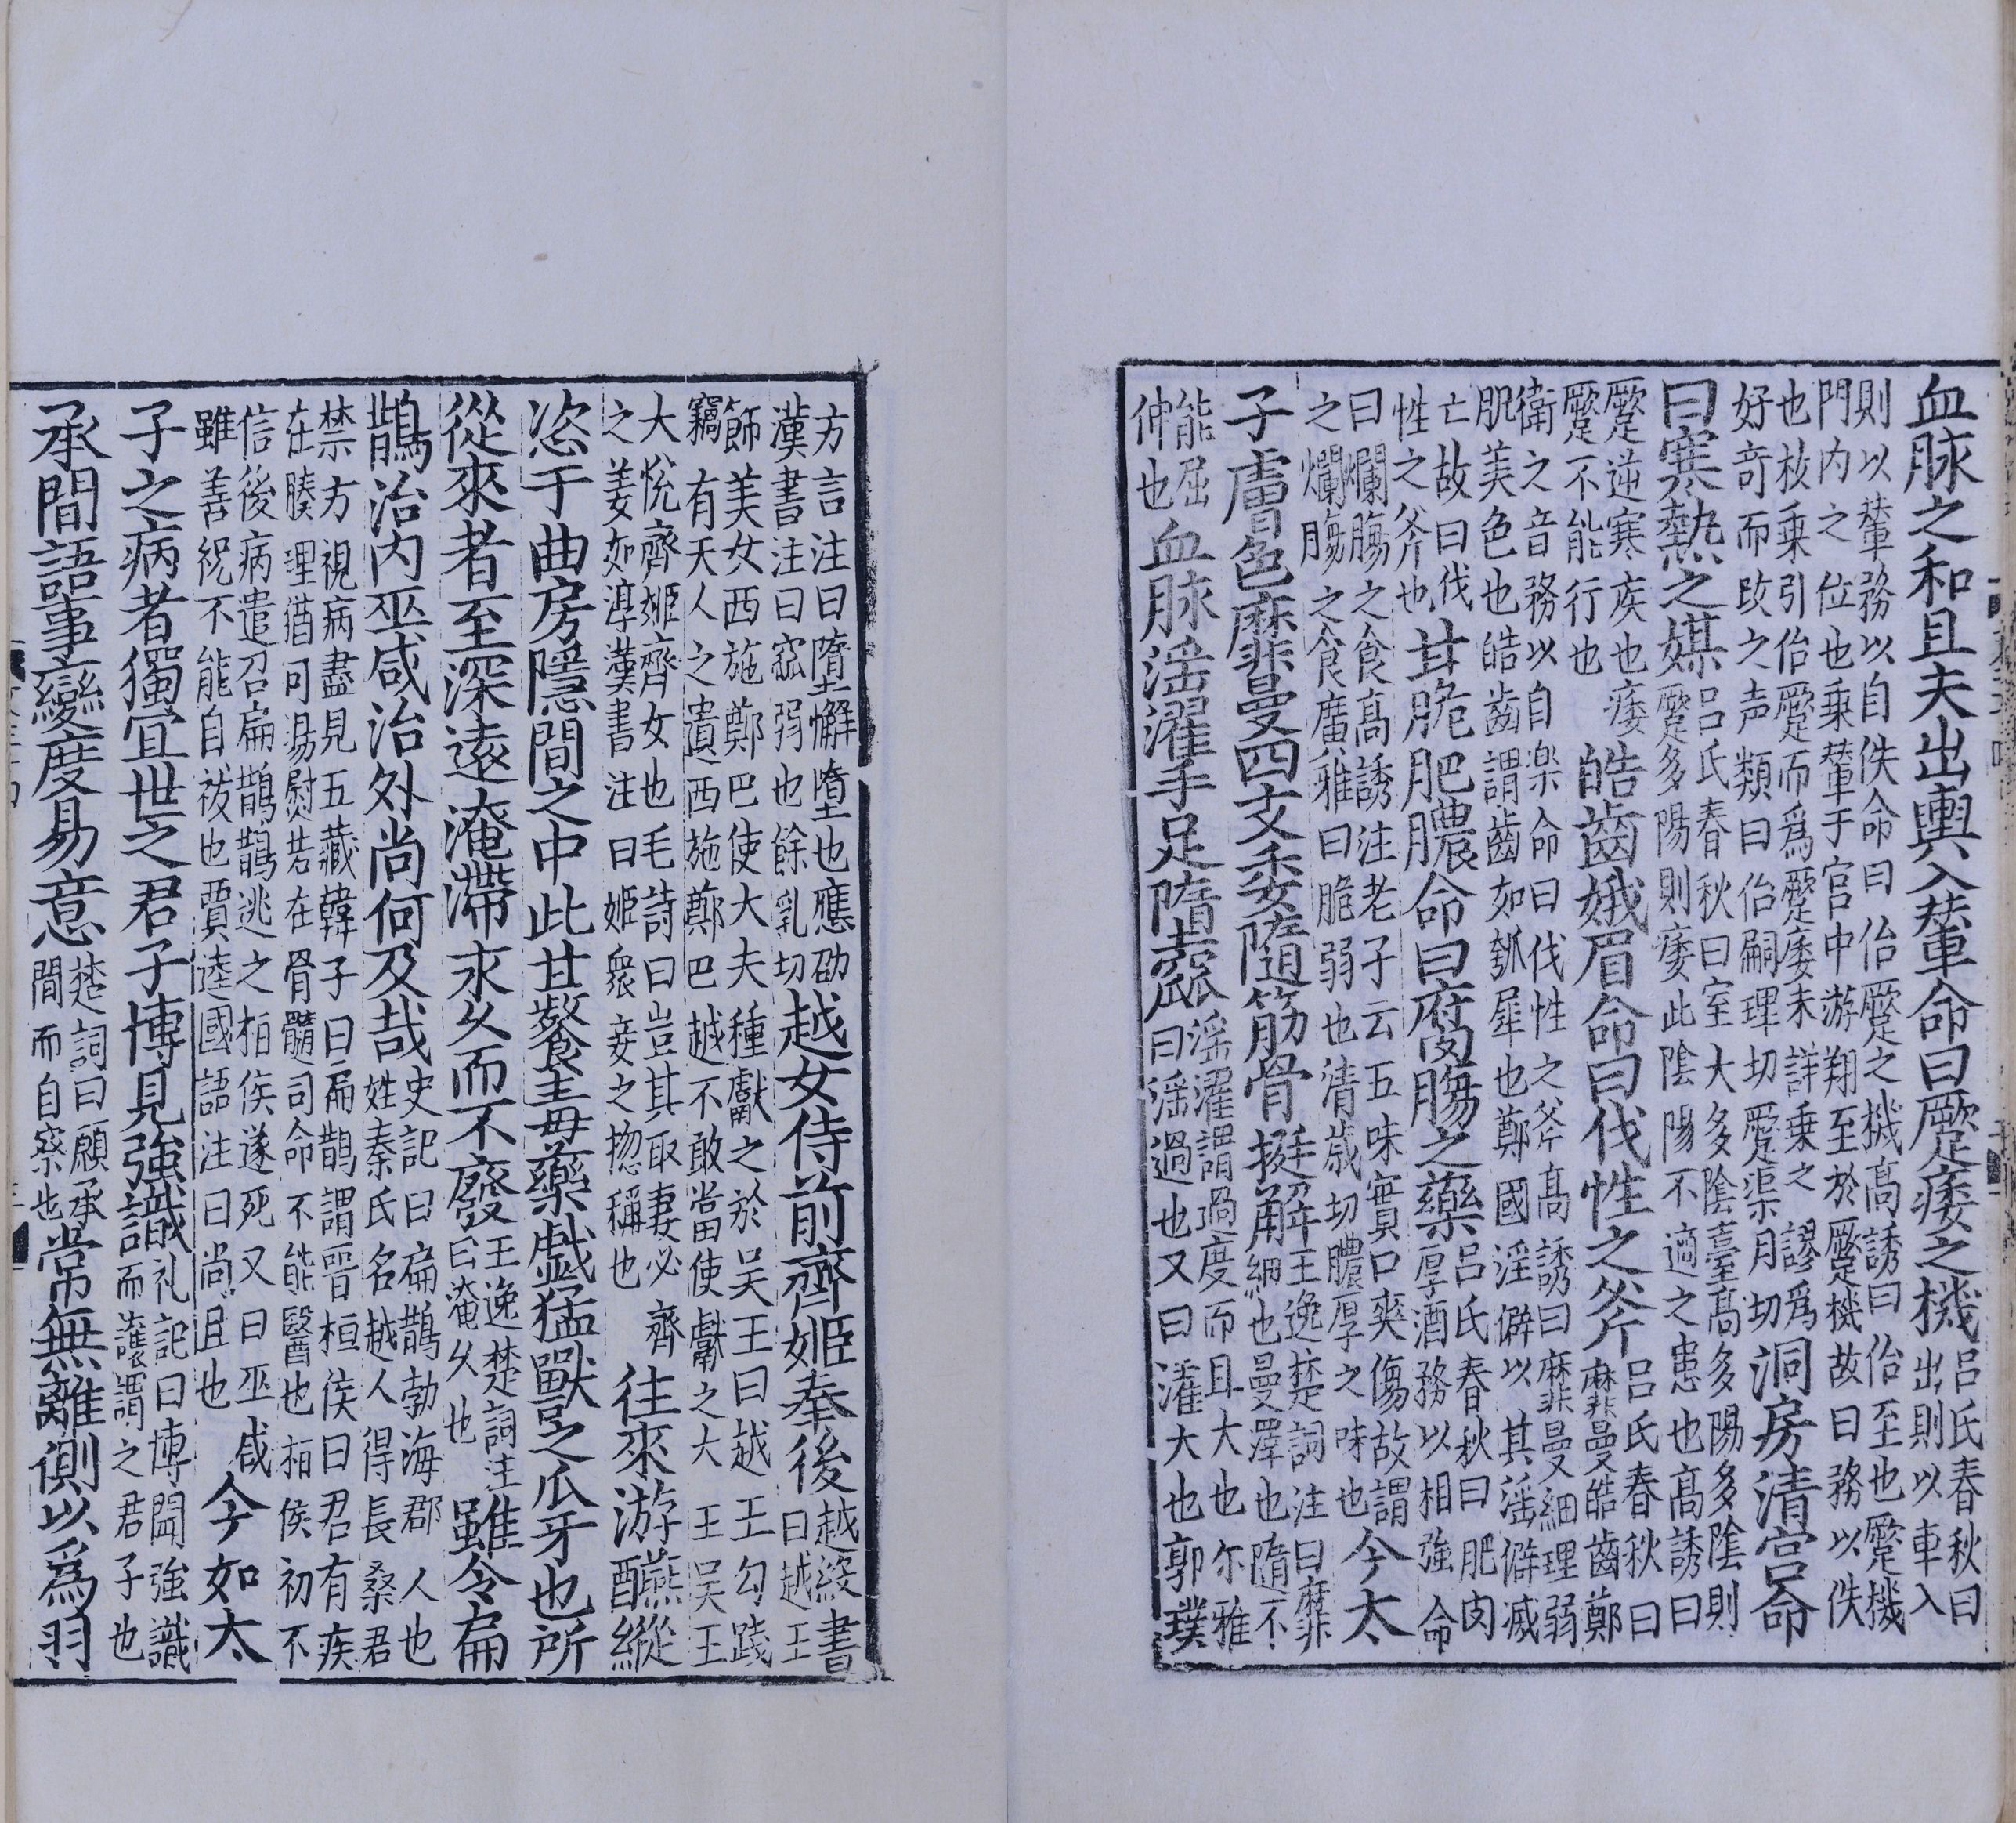 血脉之和且夫出輿入輦命曰蹷痿之機吕氏春秋曰出則以車入
則以輦務以自佚命曰佁蹷之機髙誘曰佁至也蹷機
門内之位也乗輦于宫中游翔至於蹷機故曰務以佚
也枚乗引佁蹷而爲蹷痿未詳乗之謬爲
好竒而攺之声類曰佁嗣理切蹷渠月切洞房清宫命
曰寒熱之媒吕氏春秋曰室大多隂臺髙多陽多隂則
蹷多陽則痿此隂陽不適之患也髙誘曰
蹷逆寒疾也痿
蹷不能行也皓齒娥眉命曰伐性之斧吕氏春秋曰靡曼皓齒鄭
衛之音務以自楽命曰伐性之斧髙誘曰靡曼細理弱
肌美色也皓齒謂齒如瓠犀也鄭國淫僻以其滛僻滅
亡故曰伐
性之斧也甘脆肥膿命曰腐膓之藥吕氏春秋曰肥肉厚酒務以相強命
曰爛膓之食髙誘注老子云五味實口爽傷故謂
之爛膓之食廣雅曰脆弱也清歳切膿厚之味也今太
子膚色靡曼四支委隨筋骨挺解王逸楚詞注曰靡細也曼澤也隨不
能屈
伸也血脉滛濯手足墮窳滛濯謂過度而且大也尓雅曰滛過也又曰濯大也郭璞
方言注曰墮懈墮也應劭
漢書注曰窳弱也餘乳切越女侍前齊姬奉後越絶書曰越王
飾美女西施鄭巴使大夫種獻之於吴王曰越王勾踐
竊有天人之遺西施鄭巴越不敢當使獻之大王吴王
大恱齊姬齊女也毛詩曰豈其取妻必齊
之姜如淳漢書注曰姬衆妾之揔稱也往來游醼縱
恣于曲房隱間之中此甘餐毒藥戲猛獸之爪牙也所
從來者至深逺淹滯永久而不廢王逸楚詞注曰淹久也雖令扁
鵲治内巫咸治外尚何及哉史記曰扁鵲勃海郡人也姓秦氏名越人得長桑君
禁方視病盡見五藏韓子曰扁鵲謂晉桓侯曰君有疾
在腠理猶可湯熨若在骨髓司命不能醫也桓侯初不
信後病遣召扁鵲鵲逃之栢侯遂死又曰巫咸
雖善祝不能自祓也賈逵國語注曰尚且也今如太
子之病者獨宜世之君子博見強識礼記曰博聞強識而讓謂之君子也
承間語事變度易意楚詞曰願承間而自察也常無離側以爲羽